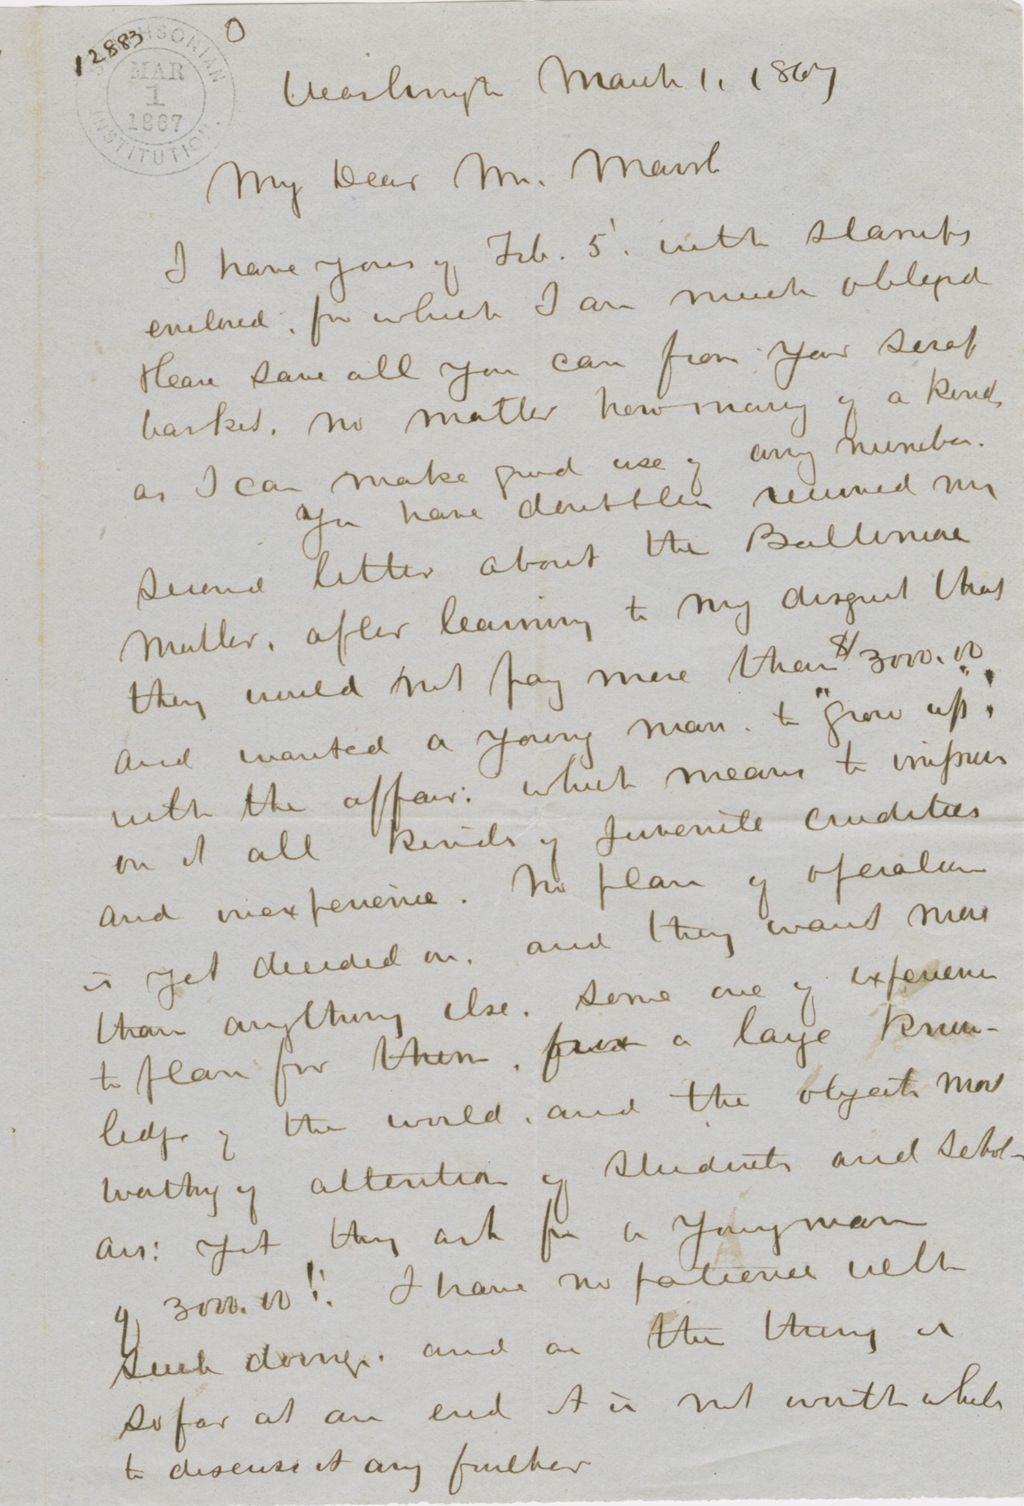 12883
SMITHSONIAN
INSTITUTION
MAR
1
1867
Washington March 1, 1867
My Dear Mr. Marsh
I have yours of Feb. 5. with stamps
enclosed, for which I am much obliged
Please save all you can from your scrap
basket, no matter how many of a kind,
as I can make good use of any number.
You have doubtless received my
second letter about the Baltimore
matter, after learning to my disgust that
they would not pay more than $3000.00
and wanted a young man to "grow up";
with the affair: which means to impress
on it all kinds of juvenile crudities
and inexperience. No plan of operation
is yet decided on, and they want more
than anything else, some one of experience
to plan for them, a large know-
ledge of the world, and the objects most
worthy of attention of students and schol-
ars: yet they ask for a young man
of 3000.00!! I have no patience with
such doings, and as the thing is
so far at an end it is not worth while
to discuss it any further